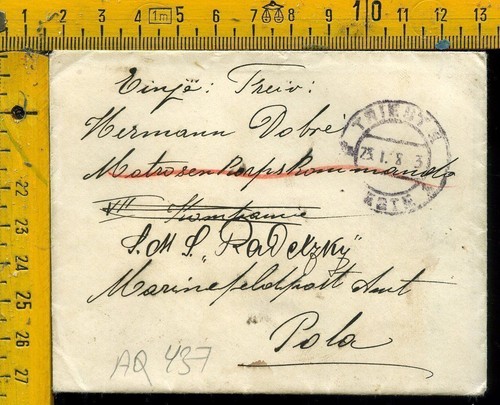 1 2 3 4 1m 5 6 7 8 9 10 11 12 13
Einjë: Freiv:
Hermann Dobré
Matrosenkorpskommando
VII Kompanie
S.M.S. „Radetzky"
Marinefeldpost Amt
Pola
TRIEST 3
23.1.8 3
AQ 437
22
23
24
25
26
27